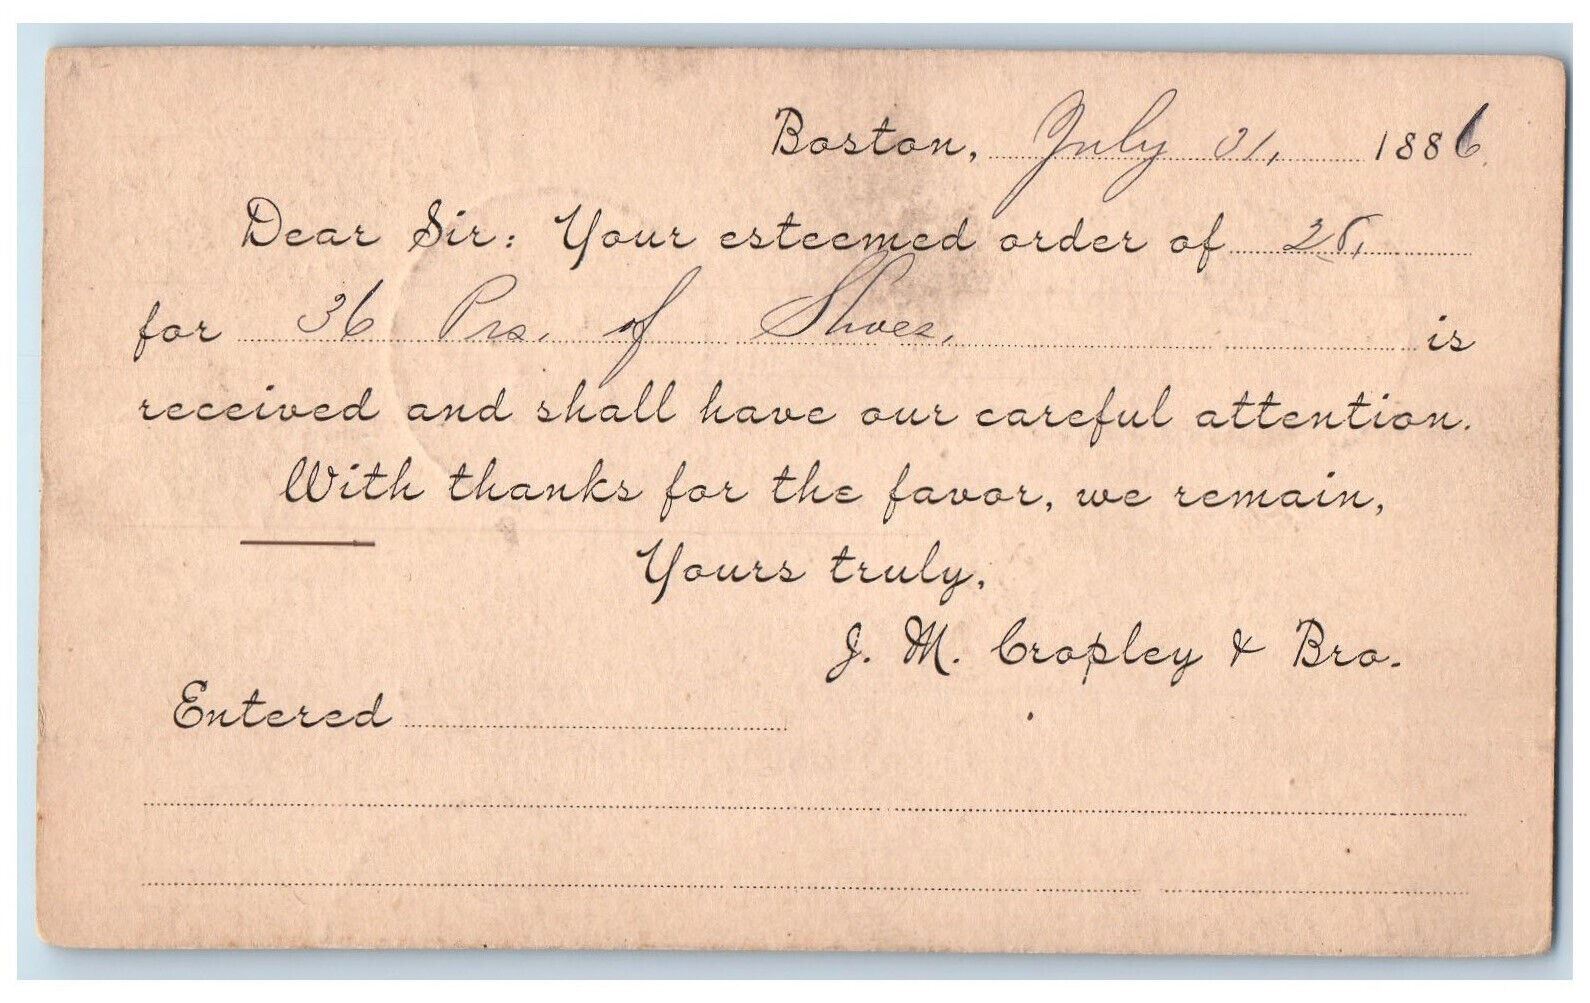 Boston, July 31, 1886
Dear Sir: Your esteemed order of
for 36 Prs. of Shoes, is
received and shall have our careful attention.
With thanks for the favor, we remain,
Yours truly,
J. M. Cropley & Bro.
Entered